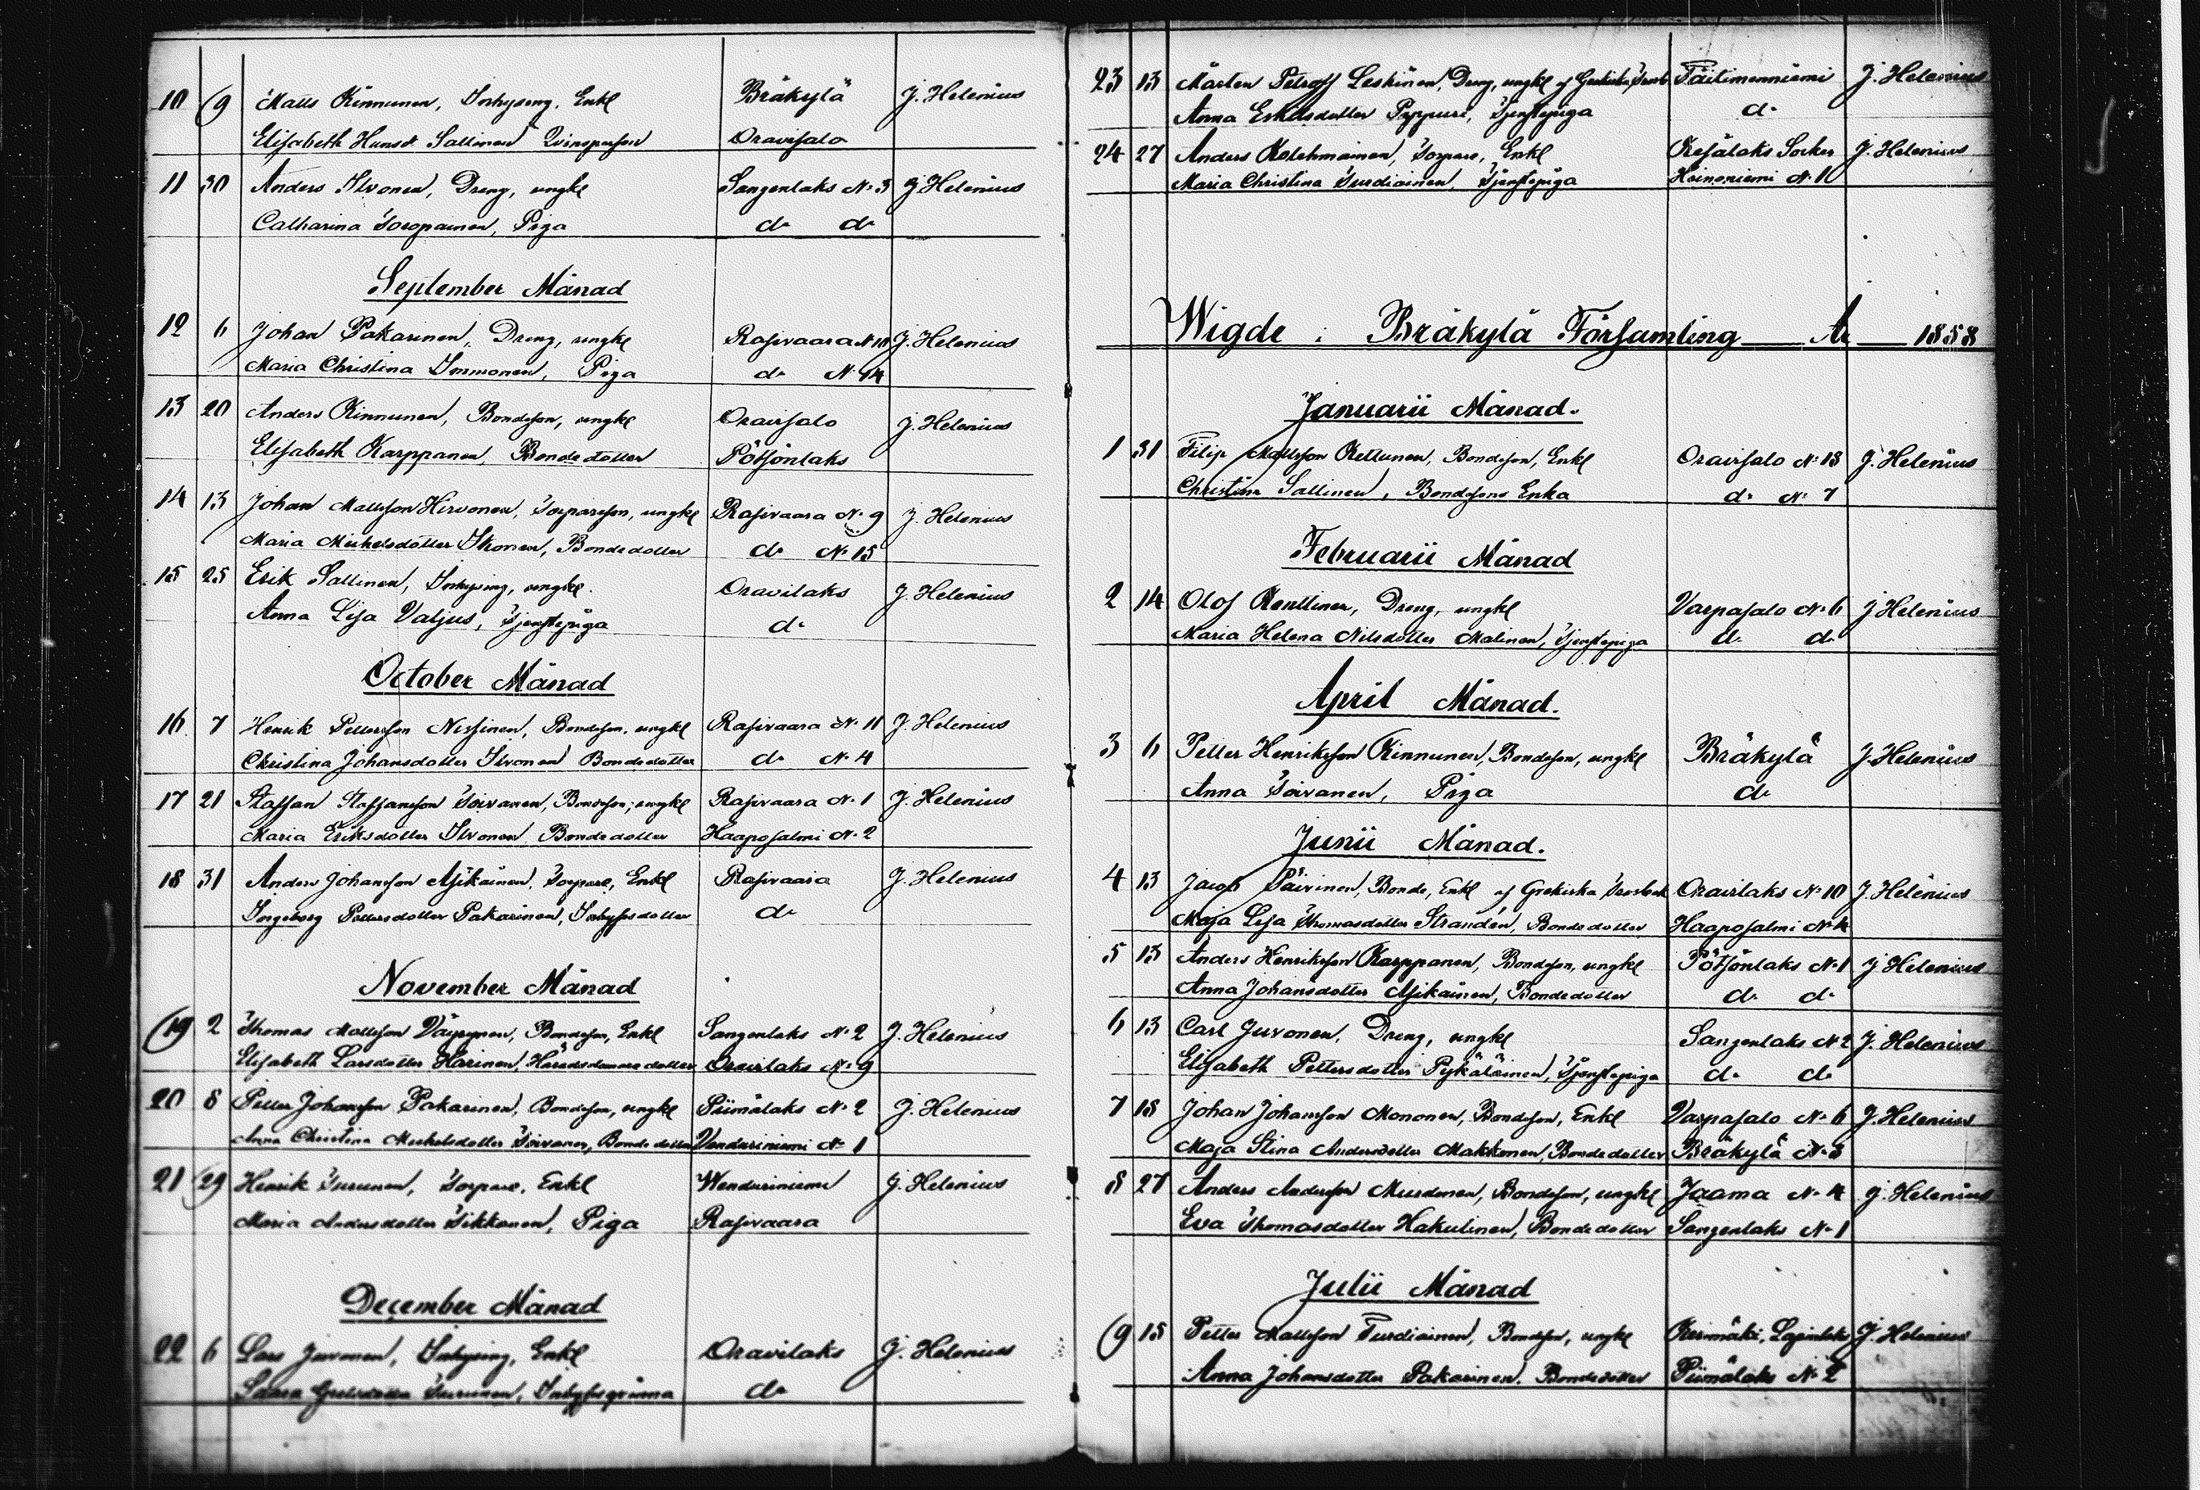 10 9 Matts Kinnunen, Inhysing, Enkl Bräkylä J. Helenius
Elisabeth Hansd. Sallinen Qvinsperson Oravisalo
11 30 Anders Ilvonen, Dreng, ungkl Sangenlaks N. 3 J. Helenius
Catharina Toropainen, Piga do do
September Månad
12 6 Johan Pakarinen, Dreng, ungkl Rasivaara N 10 J. Helenius
Maria Christina Immonen, Piga do N. 14
13 20 Anders Kinnunen, Bondeson, ungkl Oravisalo J. Helenius
Elisabeth Karppanen, Bondedotter Pötsönlaks
14 13 Johan Mattsson Hirvonen, Torpareson, ungkl Rasivaara N. 9 J. Helenius
Maria Michelsdotter Ikonen, Bondedotter do N. 15
15 25 Erik Sallinen, Inhysing, ungkl. Oravilaks J. Helenius
Anna Lisa Valjus, Tjenstepiga do
October Månad
16 7 Henrik Pettersson Nissinen, Bondeson, ungkl Rasivaara N. 11 J. Helenius
Christina Johansdotter Ilvonen Bondedotter do N. 4
17 21 Staffan Staffansson Toivanen, Bondeson, ungkl Rasivaara N. 1 J. Helenius
Maria Eriksdotter Ilvonen, Bondedotter Haaposalmi N. 2
18 31 Anders Johansson Asikainen, Torpare, Enkl Rasivaara J. Helenius
Ingeborg Pettersdotter Pakarinen, Inhysesdotter do
November Månad
19 2 Thomas Mattsson Väyrynen, Bondeson, Enkl Sangenlaks N. 2 J. Helenius
Elisabeth Larsdotter Harinen, Oravilaks N. 9
20 8 Petter Johansson Pakarinen, Bondeson, ungkl Piimälaks N. 2 J. Helenius
Anna Christina Michelsdotter Toivanen, Bondedotter Venduriniemi N. 1
21 29 Henrik Turunen, Torpare, Enkl Wendurinieme J. Helenius
Maria Andersdotter Tikkanen, Piga Rasivaara
December Månad
22 6 Lars Juvonen, Inhysing, Enkl Oravilaks J. Helenius
Turunen, Inhysesqvinna do
23 13 Mårten Petroff Leskinen, Dreng, ungkl af Grekiska J. Helenius
Anna Pyyppuri, Tjenstepiga do
24 27 Anders Kolehmainen, Torpare, Enkl Kesälaks Socken J. Helenius
Maria Christina Turdiainen, Tjenstepiga Heinoniemi N. 1
Wigde i Bräkylä Församling År 1858
Januarii Månad.
1 31 Filip Mattsson Kettunen, Bondeson, Enkl Oravisalo N. 13 J. Helenius
Christina Sallinen, Bondesons Enka do N. 7
Februarii Månad
2 14 Olof Konttinen, Dreng, ungkl Varpasalo N. 6 J. Helenius
Maria Helena Nilsdotter Malinen, Tjenstepiga do do
April Månad.
3 6 Petter Henriksson Kinnunen, Bondeson, ungkl Bräkylä J. Helenius
Anna Toivanen, Piga do
Junii Månad.
4 13 Jacob Päivinen, Bonde, Enkl af Grekiska Oravilaks N. 10 J. Helenius
Maja Lisa Thomasdotter Strandén, Bondedotter Haaposalmi N. 4
5 13 Anders Henriksson Karppanen, Bondeson, ungkl Pötsönlaks N. 1 J. Helenius
Anna Johansdotter Asikainen, Bondedotter do do
6 13 Carl Juvonen, Dreng, ungkl Sangenlaks N 2 J. Helenius
Elisabeth Pettersdotter Pykäläinen, Tjenstepiga do do
7 18 Johan Johansson Mononen, Bondeson, Enkl Varpasalo N. 6 J. Helenius
Maja Stina Andersdotter Makkonen, Bondedotter Bräkylä N. 3
8 27 Anders Andersson Mustonen, Bondeson, ungkl Jaama N. 4 J. Helenius
Eva Thomasdotter Hakulinen, Bondedotter Sangenlaks N. 1
Julii Månad
9 15 Petter Mattsson Turdiainen, Bondeson, ungkl Kerimäki, J. Helenius
Anna Johansdotter Pakarinen, Bondedotter Piimälaks N. 2